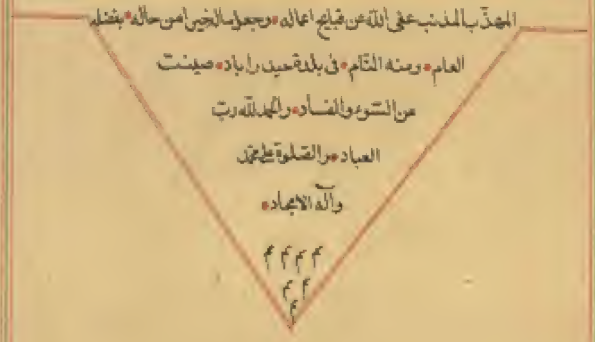 المهذّب المذنب عفى الله عن قبايح اعماله وجعل مآل الخير امن حاله بفضله
العام ومنه التام فى بلدة حيدراباد صينت
عن السّوء والفساد والحمد لله ربّ
العباد والصّلوة على محمّد
وآله الامجاد
م م م م
م م
م